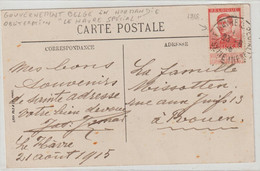 GOUVERNEMENT BELGE EN NORMANDIE
OBLITERATION "LE HAVRE SPECIAL"
CARTE POSTALE
CORRESPONDANCE
ADRESSE
Mes bons
Souvenirs
de sainte adresse
votre bien dévoué
Le Hâvre
21 août 1915
La famille
rue aux Juifs 13
à Rouen